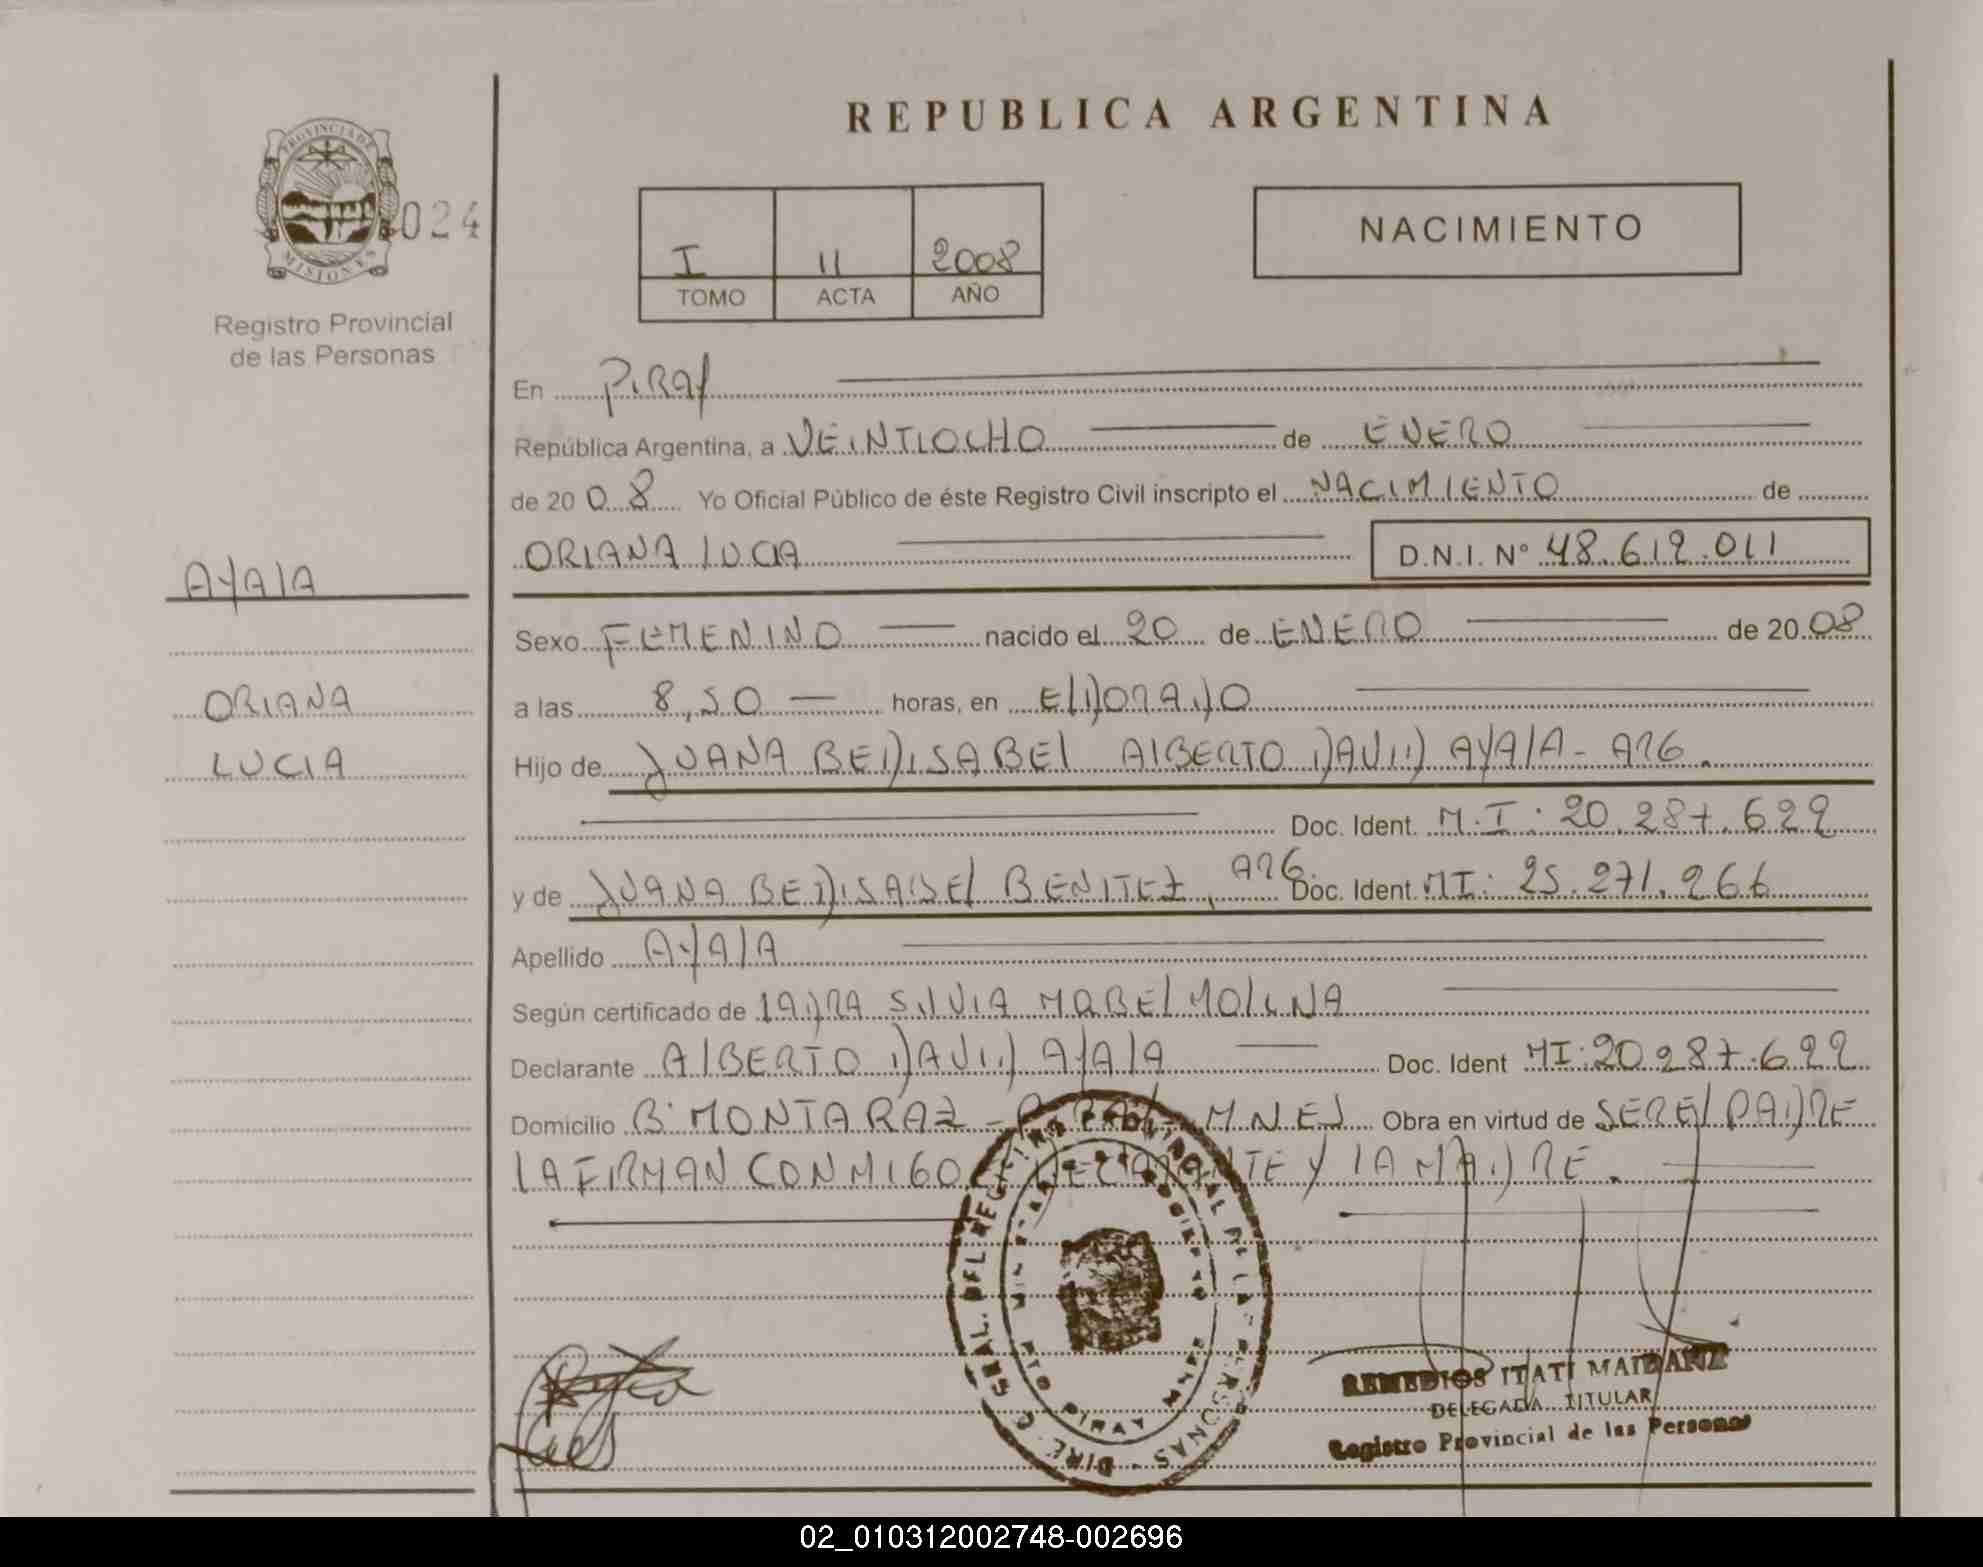 REPUBLICA ARGENTINA
PROVINCIA DE
MISIONES
024
Registro Provincial
de las Personas
I 11 2008
TOMO ACTA AÑO
NACIMIENTO
En PIRAY
República Argentina, a VEINTIOCHO de ENERO
de 20 08 Yo Oficial Público de éste Registro Civil inscripto el NACIMIENTO de
ORIANA LUCIA D.N.I. Nº 48.612.011
AYALA
ORIANA
LUCIA
Sexo FEMENINO nacido el 20 de ENERO de 20 08
a las 8,50 horas, en ELDORADO
Hijo de JUANA BEDISABEL ALBERTO DAVID AYALA - ARG.
Doc. Ident. M.I: 20.287.622
y de JUANA BEDISABEL BENITEZ, ARG. Doc. Ident. MI: 25.271.266
Apellido AYALA
Según certificado de LA DRA SILVIA MABEL MOLINA
Declarante ALBERTO DAVID AYALA Doc. Ident MI: 20.287.622
Domicilio Bº MONTARAZ - PIRAY - MNES Obra en virtud de SER EL PADRE
LA FIRMAN CONMIGO EL DECLARANTE Y LA MADRE.
DIREC. GRAL. DEL REGISTRO PROVINCIAL DE LAS PERSONAS
PTO PIRAY
REMEDIOS ITATI MAIDANA
DELEGADA TITULAR
Registro Provincial de las Personas
02_010312002748-002696